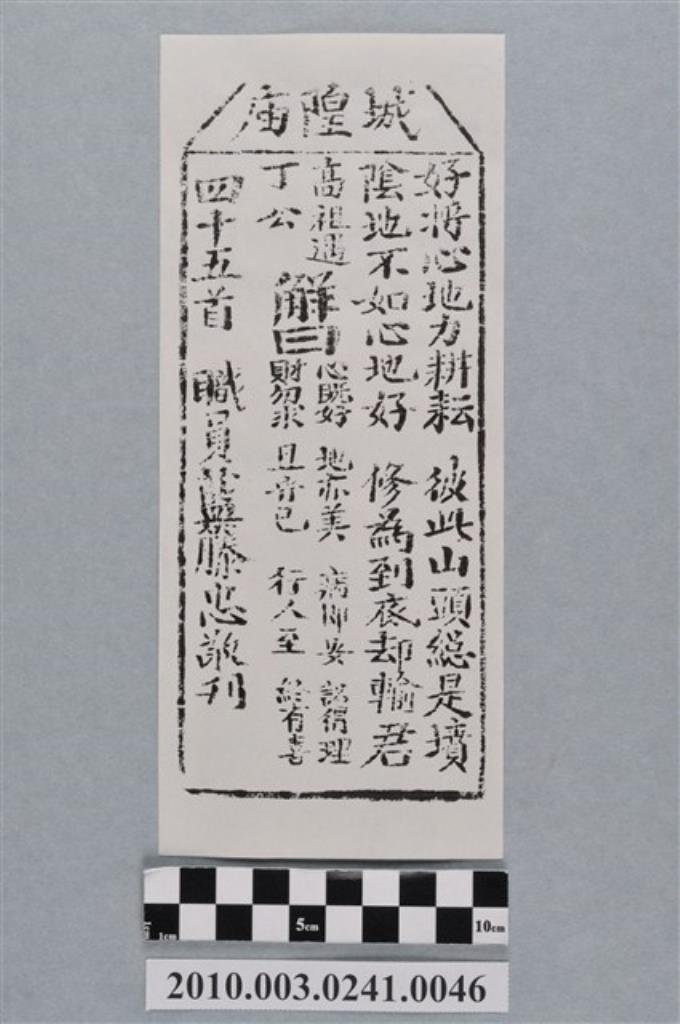 城隍庙
好将心地力耕耘 彼此山頭総是墳
陰地不如心地好 修為到底却輸君
高祖遇
丁公
解曰
心既好 地亦美 病即安 訟得理
財勿求 且守己 行人至 有喜
四十五首 職員 忠敬刊
5cm
1cm
10cm
2010.003.0241.0046